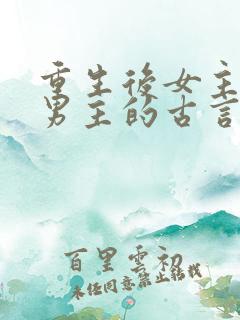 重生後女主
男主的古言
百里雲初
未经同意禁止转载